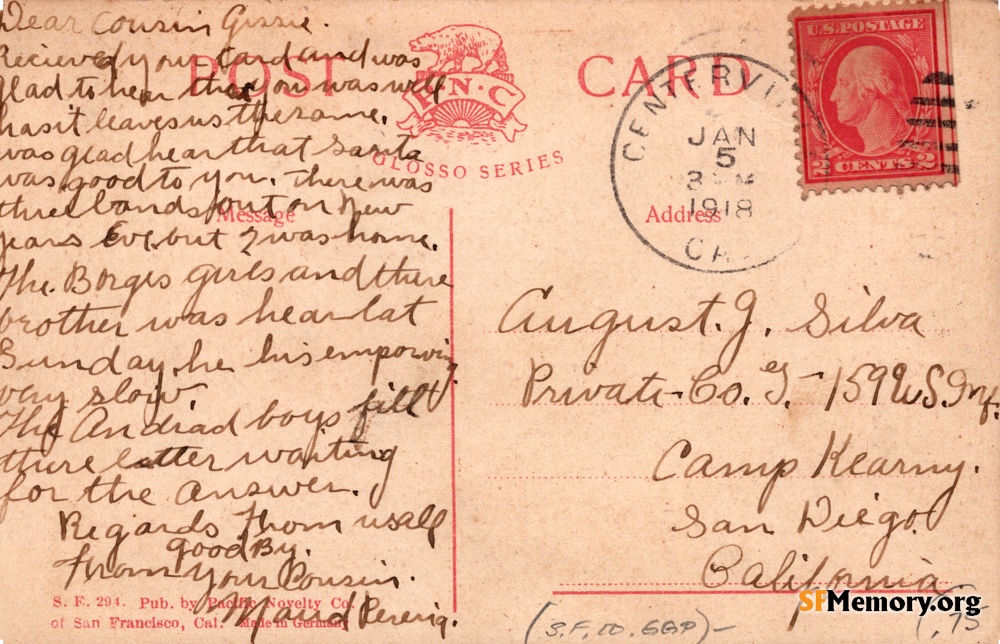 Dear Cousin Gissie.
Recieved your Card and was
glad to hear that you was well
has it leaves us the same.
was glad hear that Santa
was good to you. There was
three bands out on New
years Eve but I was home.
The Borges girls and there
brother was hear lat
Sunday he his emporving
very slow.
The Andrad boys fillt
there letter waiting
for the answer.
Regards From us all
good By.
From your Cousin.
Maud Pereira.
POST CARD
P.N.C
GLOSSO SERIES
Message
Address
CENTERVI
JAN
5
3 M
1918
CA
U.S. POSTAGE
2 CENTS 2
August. J. Silva
Private Co. G. 159 U S Inf.
Camp Kearny.
San Diego
California
S. F. 294. Pub. by Pacific Novelty Co.
of San Francisco, Cal. Made in Germany
SFMemory.org